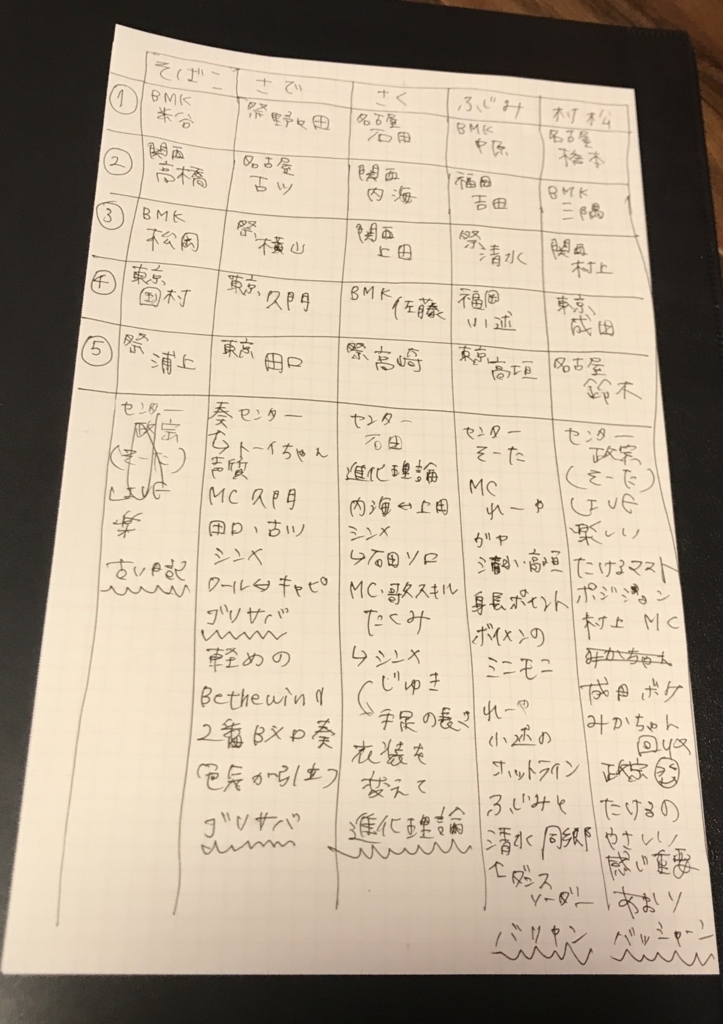 そばこ さで さく ふじみ 村松
① BMK 米谷 祭 野々田 名古屋 石田 BMK 中原 名古屋 松本
② 関西 高橋 名古屋 古川 関西 内海 福岡 吉田 BMK 三隅
③ BMK 松岡 祭 横山 関西 上田 祭 清水 関西 村上
④ 東京 村 東京 久門 BMK 佐藤 福岡 小述 東京 成田
⑤ 祭 浦上 東京 田口 祭 高崎 東京 高垣 名古屋 鈴木
センター
政宗
(そーた)
楽
奏センター
トーイちゃん
声質
MC 久門
田口・古川
シンメ
ワール⇔キャピ
ゴリサバ
軽めの
Bethewind
2番Bメロ奏
ゴリサバ
センター
石田
進化理論
内海↔上田
シンメ
↳石田ソロ
MC・歌スキル
たくみ
↳シンメ
じゅき
手足の長さ
衣装を
変えて
進化理論
センター
そーた
MC
れーや
ガヤ
清水・高垣
身長ポイント
ボイメンの
ミニモニ
れーや
小述の
ホットライン
ふじみと
清水 同郷
ダンス
リーダー
バリヤン
センター
政宗
(そーた)
楽しい
たけるマスト
ポジション
村上 MC
成田 ボケ
みかちゃん
回収
政宗
たけるの
やさしい
感じ重要
あおり
バッシャーン